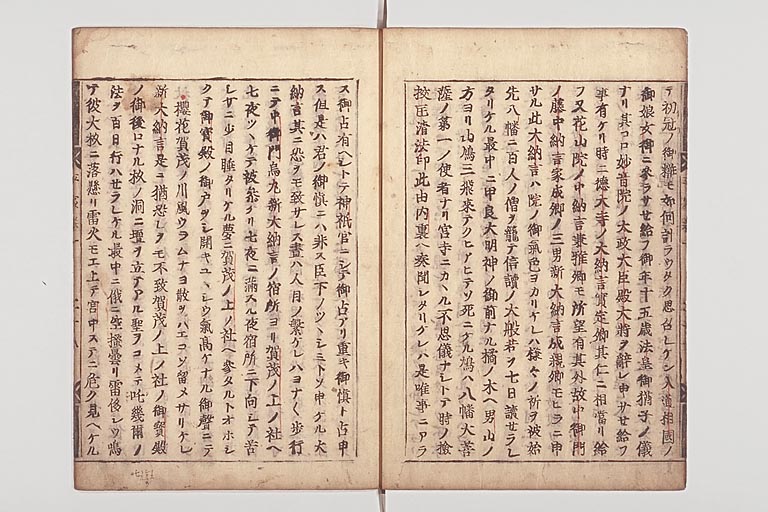 テ初冠ノ御粧モ如何計ラウタク思召レケン入道相國ノ
御娘女御ニ参ラサセ給フ御年十五歳法皇御猶子ノ儀
ナリ其コロ妙音院ノ太政大臣殿大将ヲ辞シ申サセ給フ
事有ケリ時ニ徳大寺ノ大納言實定卿其仁ニ相當リ給
フ又花山院ノ中納言兼雅卿モ所望有其外故中御門
ノ藤中納言家成卿ノ三男新大納言成親卿モヒラニ申
サル此大納言ハ院ノ御氣色ヨカリケレハ様々ノ祈ヲ被始
先八幡ニ百人ノ僧ヲ籠テ信讀ノ大般若ヲ七日讀セラレ
タリケル最中ニ甲良大明神ノ御前ナル橘ノ木ヘ男山ノ
方ヨリ山鳩三飛来テクヒアヒテソ死ニケル鳩ハ八幡大菩
薩ノ第一ノ使者ナリ宮寺ニカヽル不思儀ナシトテ時ノ撿
挍匡清法印此由内裏ヘ奏聞シタリケレハ是唯事ニアラ
ス御占有ヘシトテ神祇官ニシテ御占アリ重キ御慎ト占申
ス但是ハ君ノ御慎ニハ非ス臣下ノツヽシミトソ申ケル大
納言其ニ恐ヲモ致サレス晝ハ人目ノ繁ケレハヨナ〱歩行
ニテ中御門烏丸新大納言ノ宿所ヨリ賀茂ノ上ノ社ヘ
七夜ツヽケテ被参ケリ七夜ニ満スル夜宿所ニ下向シテ苦
シサニ少目睡タリケル夢ニ賀茂ノ上ノ社ヘ参タルトオホシ
クテ御寳殿ノ御戸ヲシ開キユヽシウ氣髙ケナル御聲ニテ
櫻花賀茂ノ川風ウラムナヨ散ヲハエコソ留メサリケレ
新大納言是ニ猶恐レヲモ不致賀茂ノ上ノ社ノ御寳殿
ノ御後ロナル杉ノ洞ニ壇ヲ立テアル聖ヲコメテ吒幾爾ノ
法ヲ百日行ハセラレケル最中ニ俄ニ空掻曇リ雷俊シウ鳴
テ彼大杉ニ落懸リ雷火モエ上テ宮中ステニ危ク見ヘケル